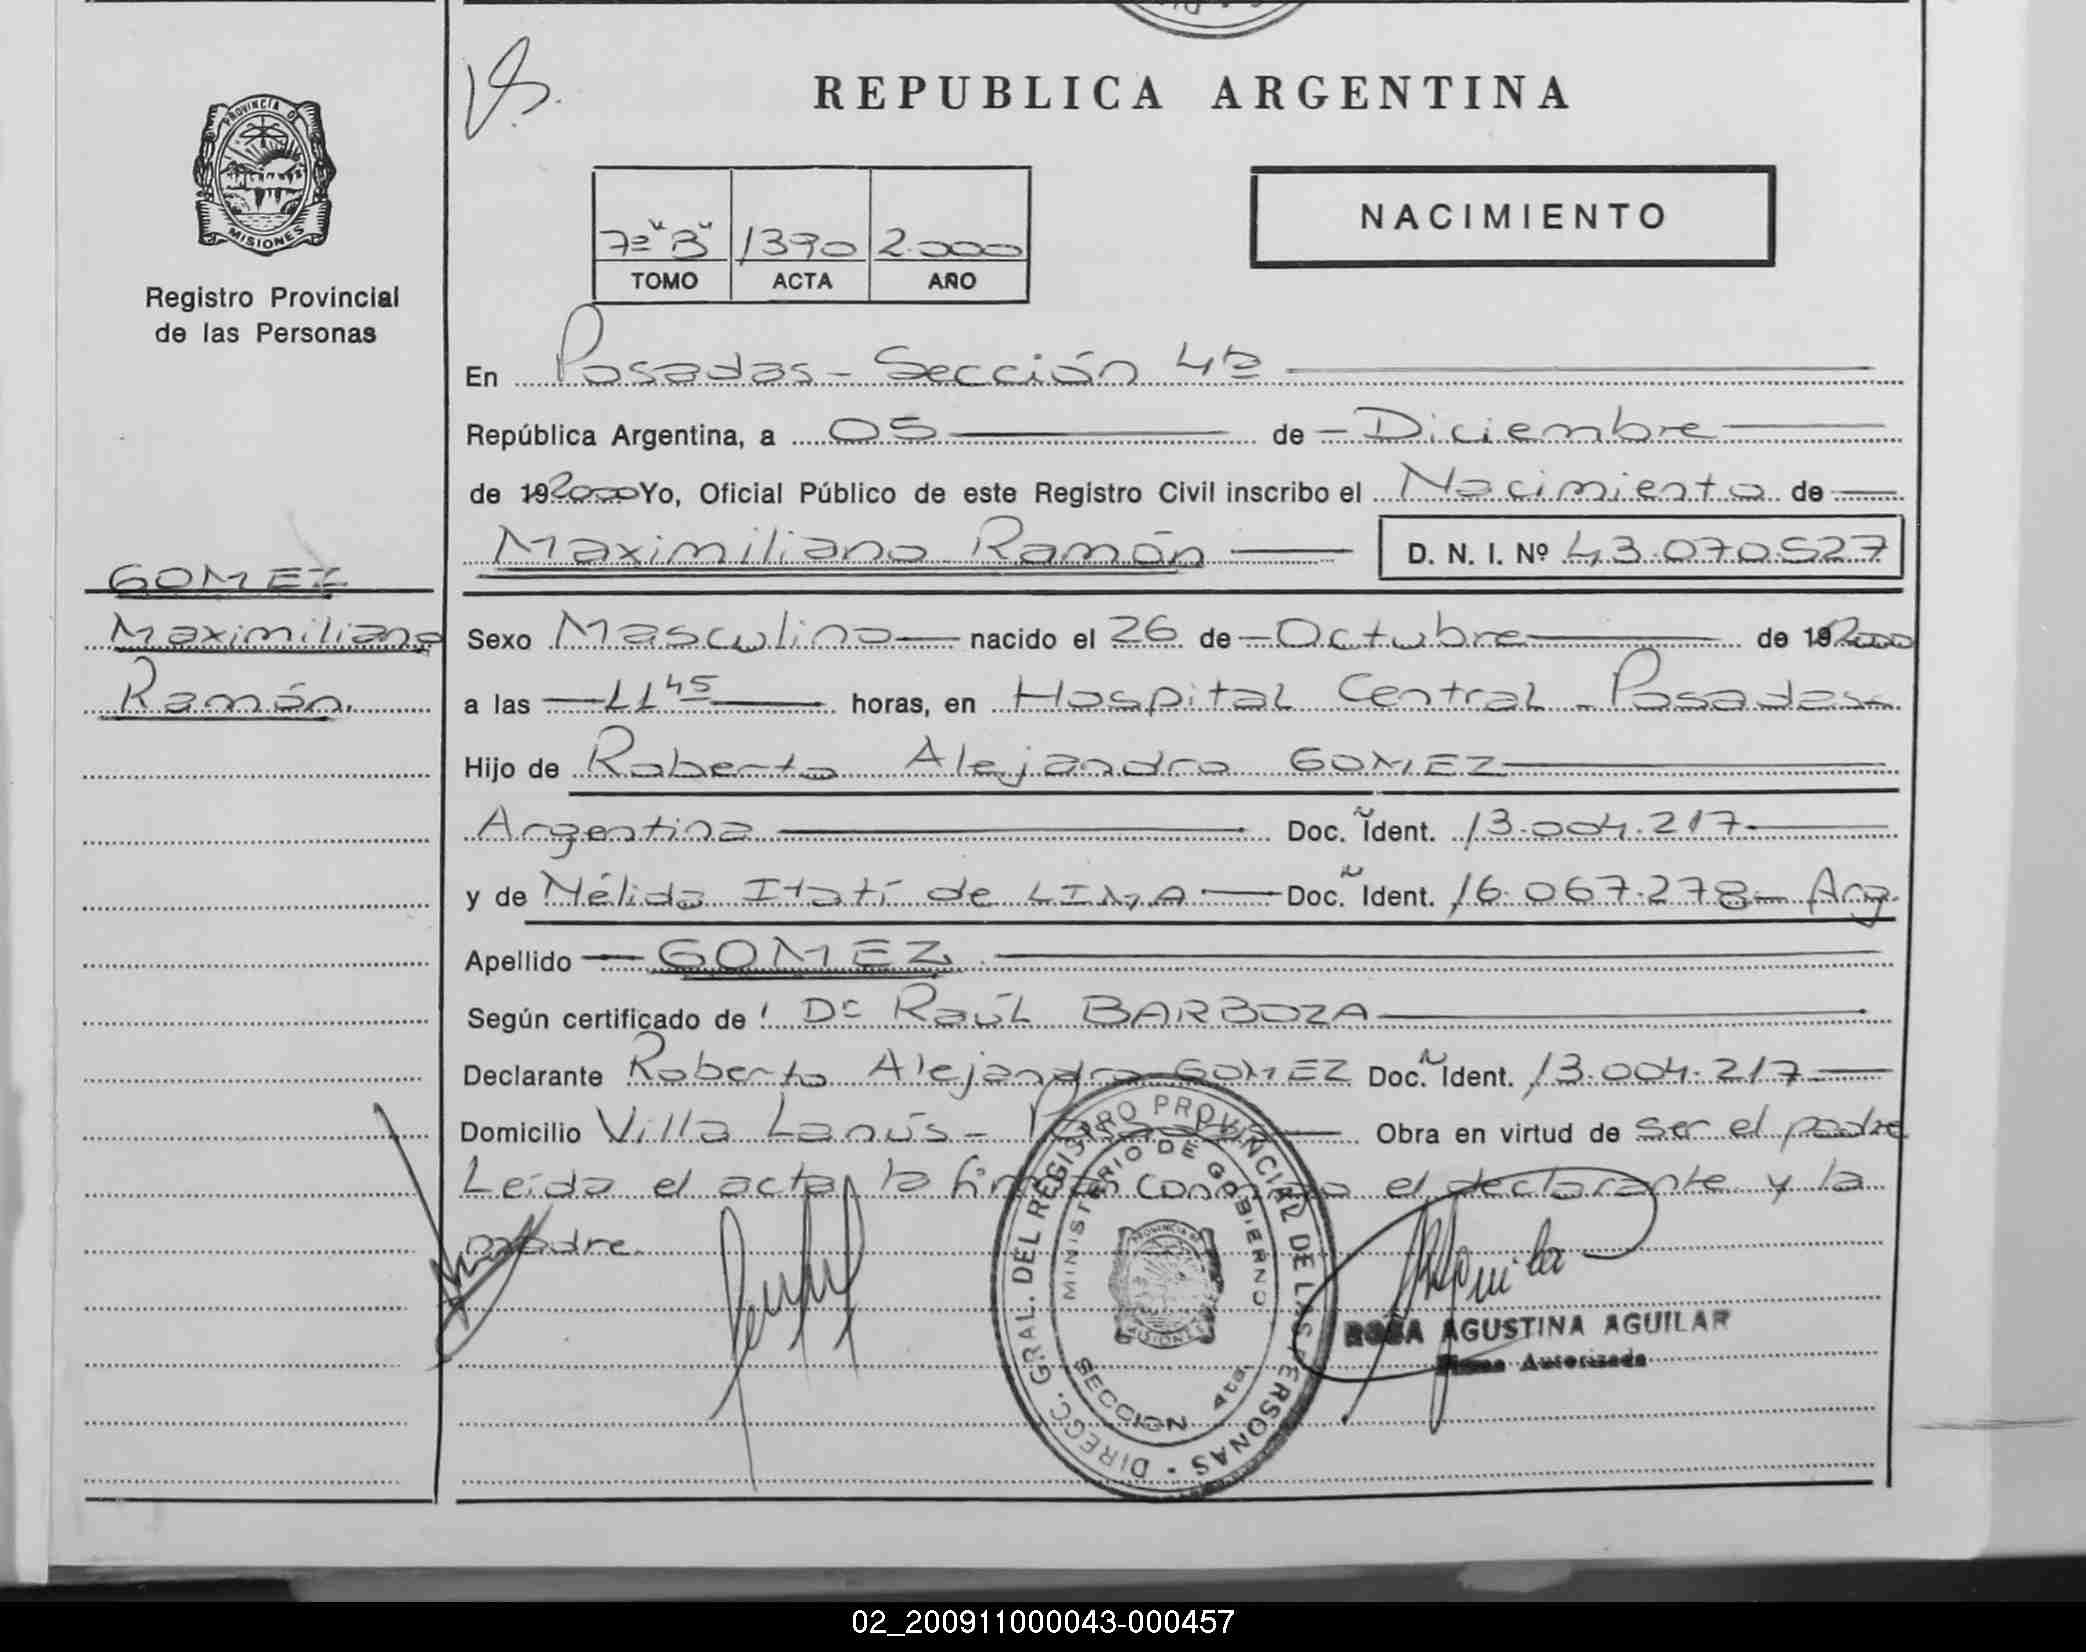 PROVINCIA D
MISIONES
Registro Provincial
de las Personas
GOMEZ
Maximiliano
Ramón.
REPUBLICA ARGENTINA
7º "B" 1390 2.000
TOMO ACTA AÑO
NACIMIENTO
En Posadas - Sección 4ª
República Argentina, a 05 de Diciembre
de 192000 Yo, Oficial Público de este Registro Civil inscribo el Nacimiento de
Maximiliano Ramón D. N. I. Nº 43.070.527
Sexo Masculino nacido el 26 de Octubre de 192000
a las 11 45 horas, en Hospital Central - Posadas
Hijo de Roberto Alejandro GOMEZ
Argentina Doc. Ident. 13.004.217
y de Nélida Itatí de LIMA Doc. Ident. 16.067.278 - Arg.
Apellido GOMEZ
Según certificado de Dr Raúl BARBOZA
Declarante Roberto Alejandro GOMEZ Doc. Ident. 13.004.217
Domicilio Villa Lanús - Posadas Obra en virtud de ser el padre
Leída el acta, la firman conmigo el declarante y la
madre.
DIRECC. GRAL. DEL REGISTRO PROVINCIAL DE LAS PERSONAS
MINISTERIO DE GOBIERNO
MISIONES
SECCION 4ta.
Aguilar
ROSA AGUSTINA AGUILAR
Firma Autorizada
02_200911000043-000457